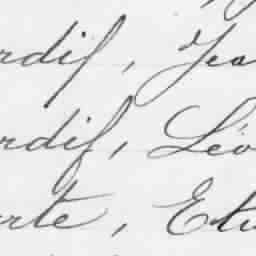 rdif, Jea
rdif, Léo
rte, Etu